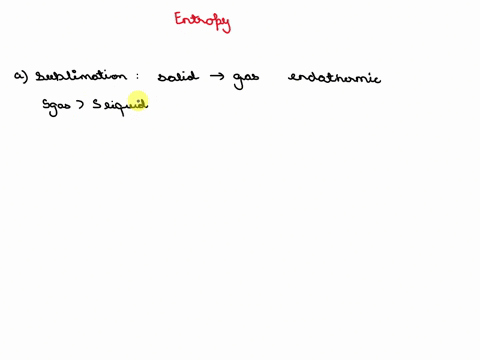 Entropy
a) sublimation : solid → gas endothermic
Sgas > Sliquid